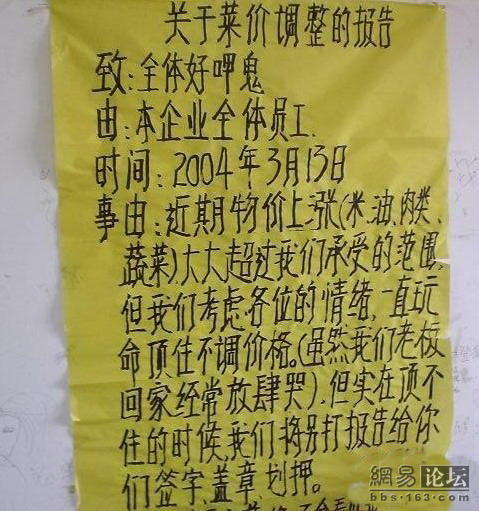 关于菜价调整的报告
致:全体好呷鬼
由:本企业全体员工.
时间:2004年3月13日
事由:近期物价上涨(米、油、肉类、
蔬菜)大大超过我们承受的范围,
但我们考虑各位的情绪,一直玩
命顶住不调价格。(虽然我们老板
回家经常放肆哭).但实在顶不
住的时候,我们将另打报告给你
们签字、盖章、划押。
網易 论坛
bbs.163.com